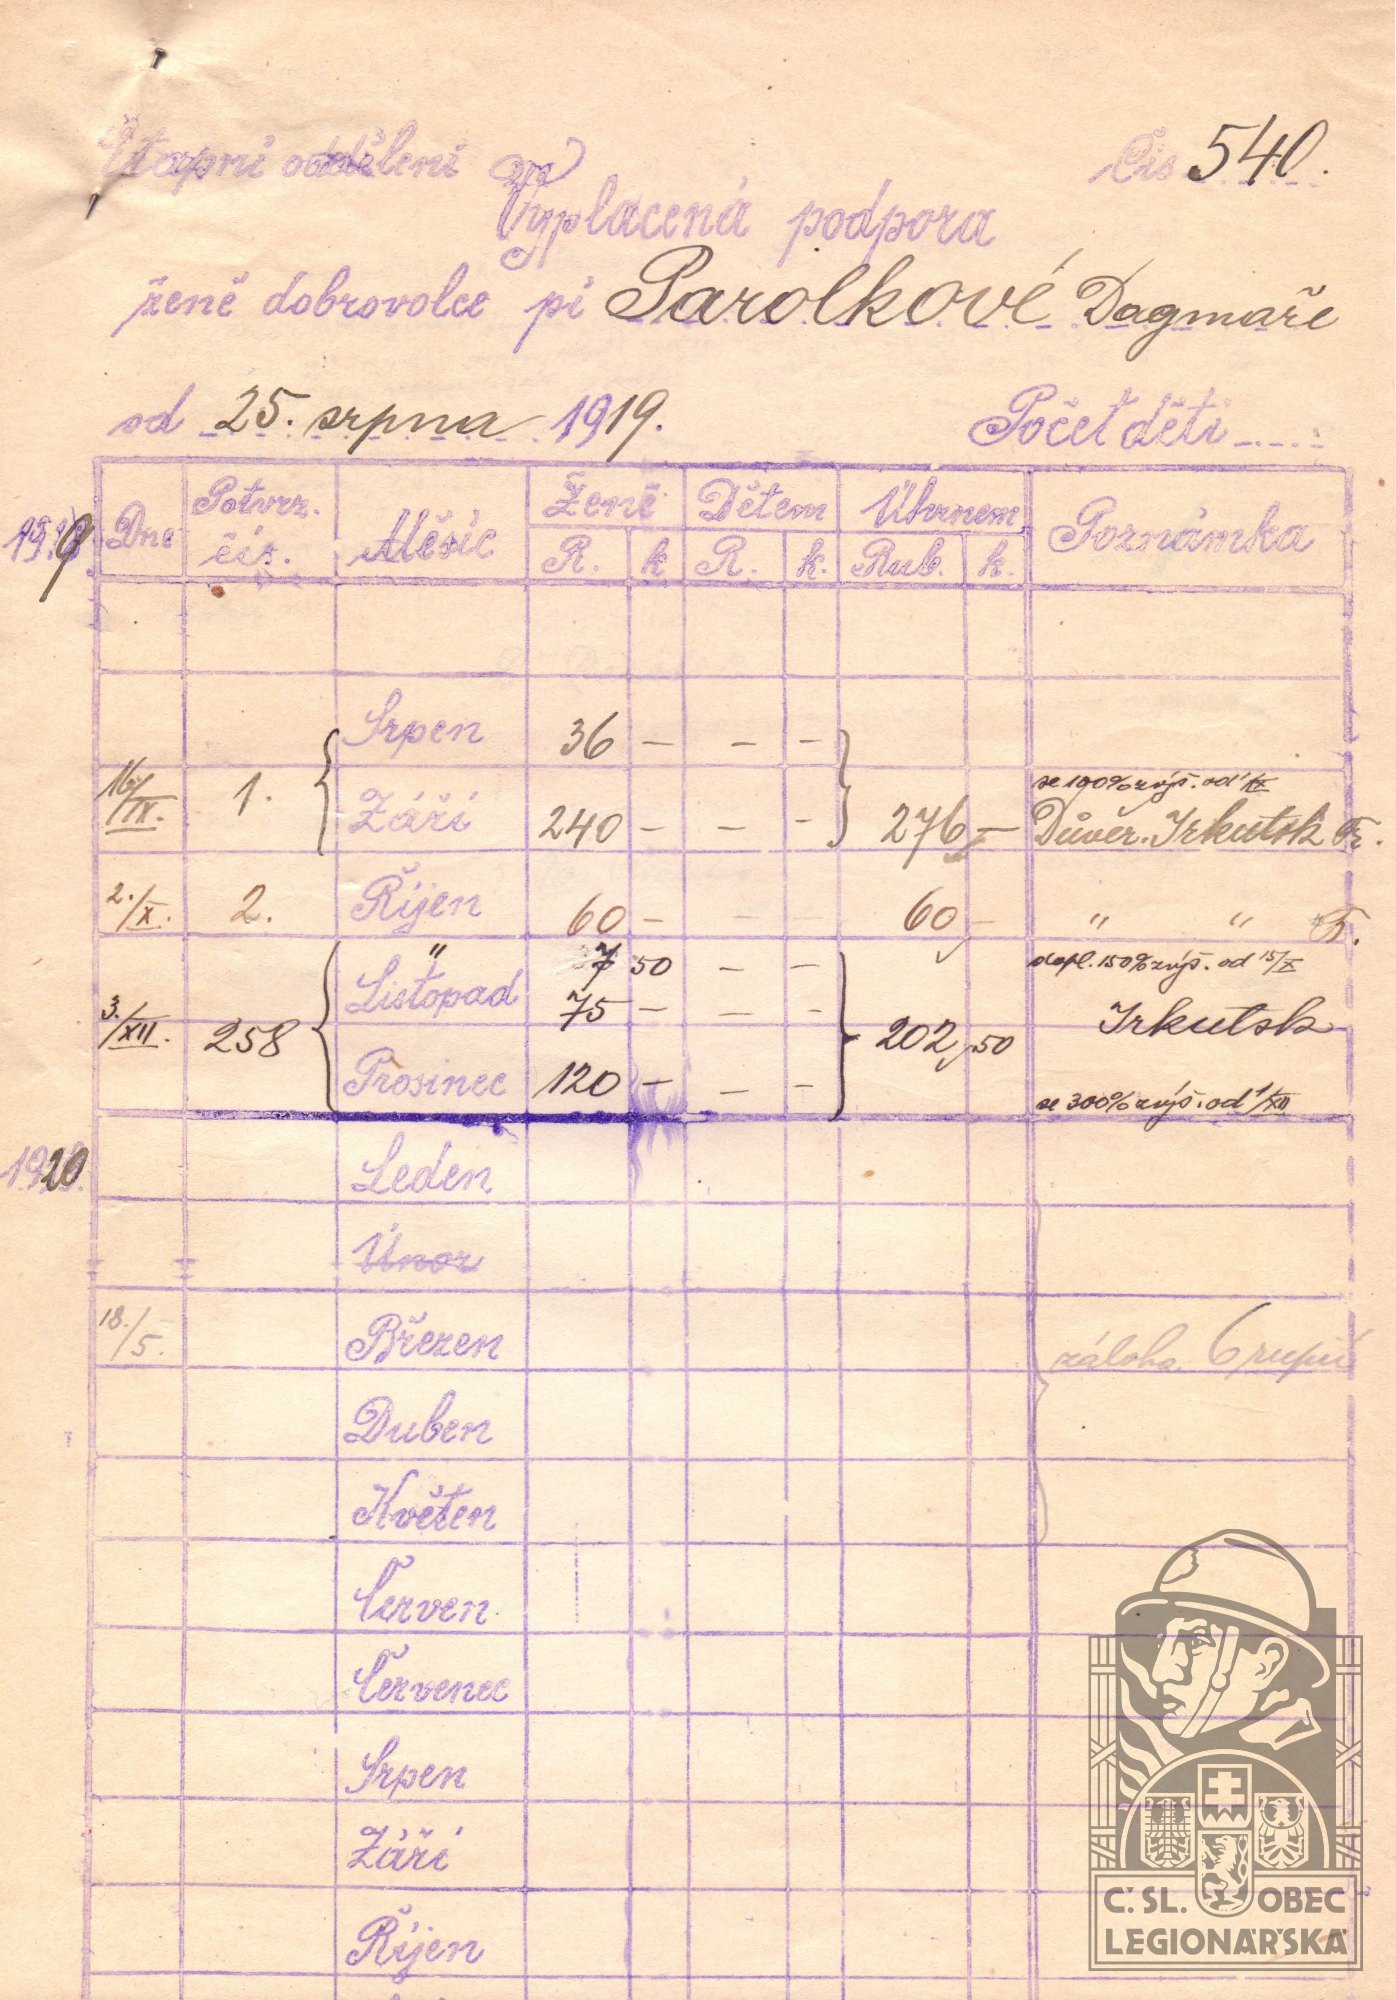 Etapní oddělení
Čís 540.
Vyplacená podpora
ženě dobrovolce pí Parolkové Dagmaře
od 25. srpna 1919.
Počet dětí
1919
Dne Potvrz. čís. Měsíc Ženě Dětem Úhrnem Poznámka
R. k R. k. Rub. k.
Srpen 36 — — —
16./IX. 1. Září 240 — — — 276 — se 100% zvýš. od 1/IX
Důvěr. Irkutsk Fr.
2./X. 2. Říjen 60 — — — 60 — " " F.
" 7 50 — — dopl. 150% zvýš. od 15/X
Listopad 75 — — —
3./XII. 258 202,50 Irkutsk
Prosinec 120 — — — se 300% zvýš. od 1/XII
1920
Leden
Únor
18./5. Březen záloha 6 rupií
Duben
Květen
Červen
Červenec
Srpen
Září
Říjen
Č. SL. OBEC
LEGIONÁŘSKÁ